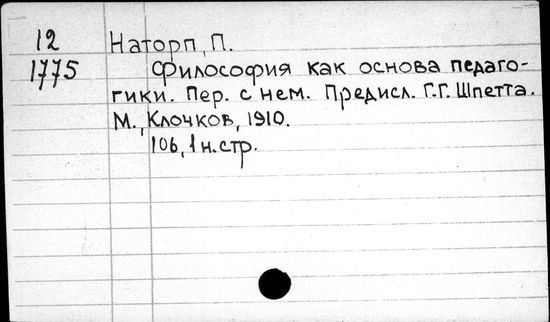 12 Наторп, П.
1775 Философия как основа педаго-
гики. Пер. с нем. Предисл. Г.Г. Шпетта.
М., Клочков, 1910.
106, 1 н. стр.